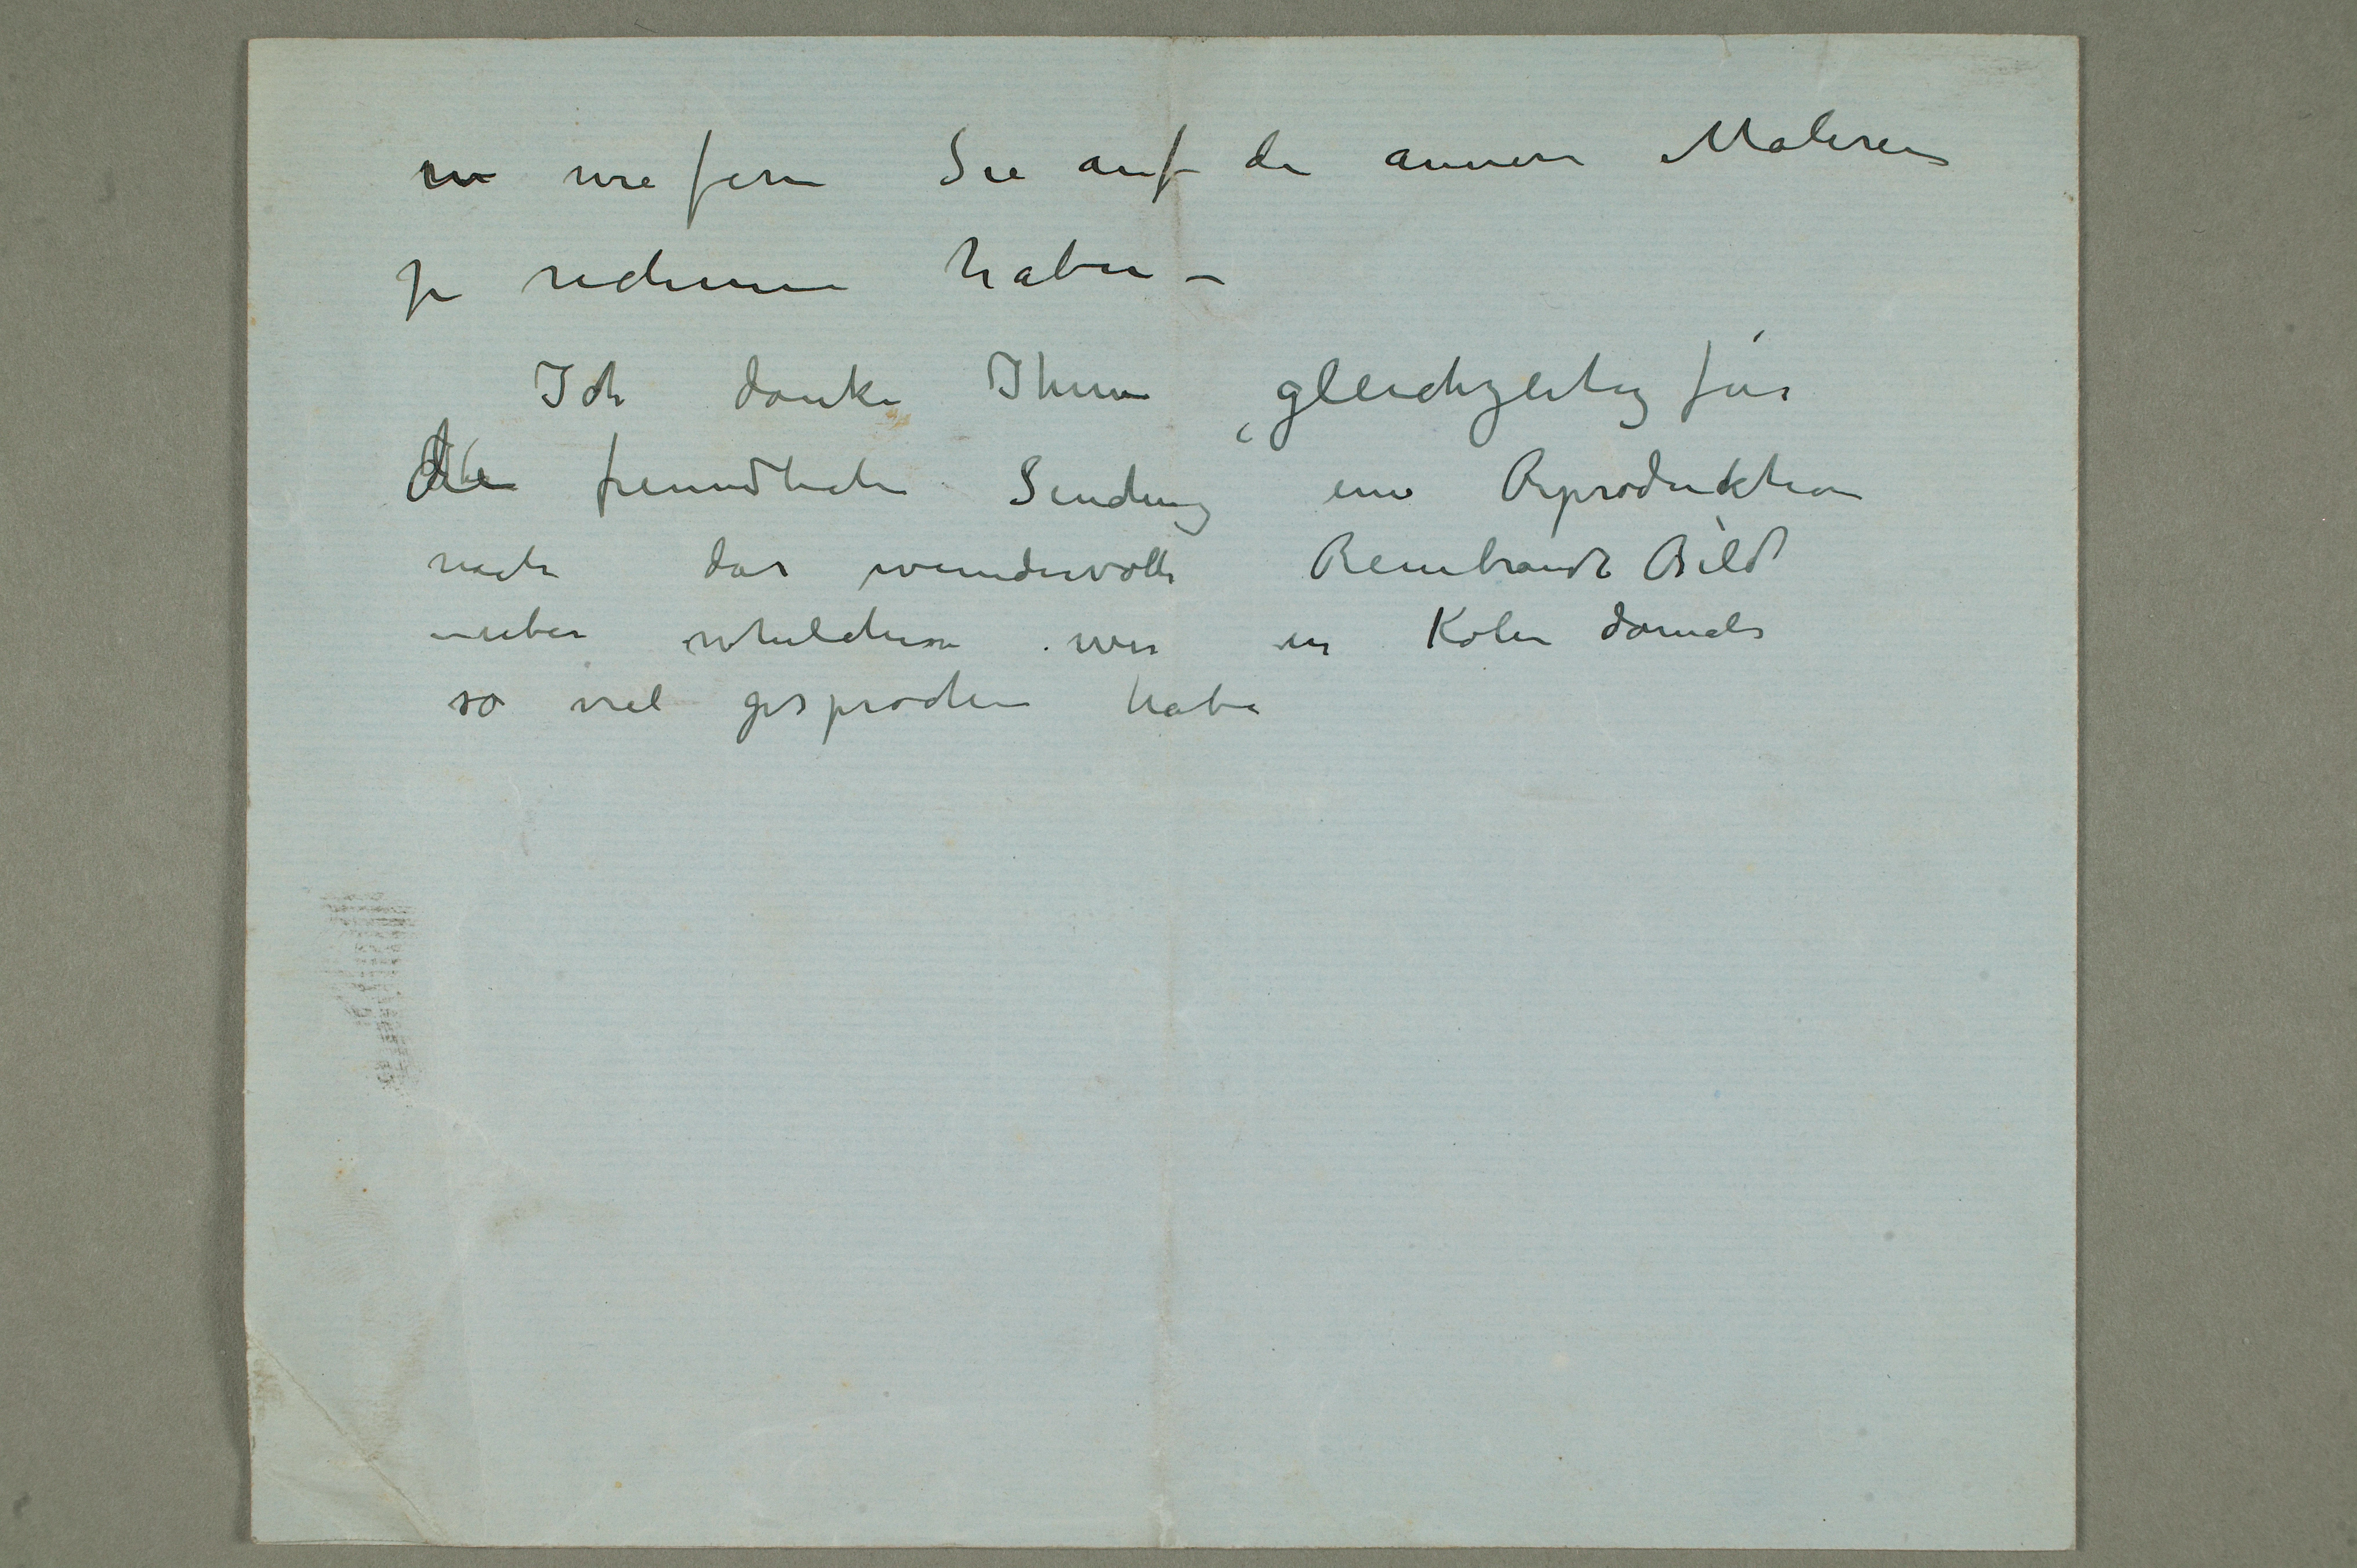 in wie fern Sie auf die anderen Malereien
zu rechnen haben –
Ich danke Ihnen gleichzeitig für
die freundliche Sendung eine Reproduktion
nach das wundervolle Rembrandt Bild
– über whelchem wir in Köln damals
so viel gesprochen habe